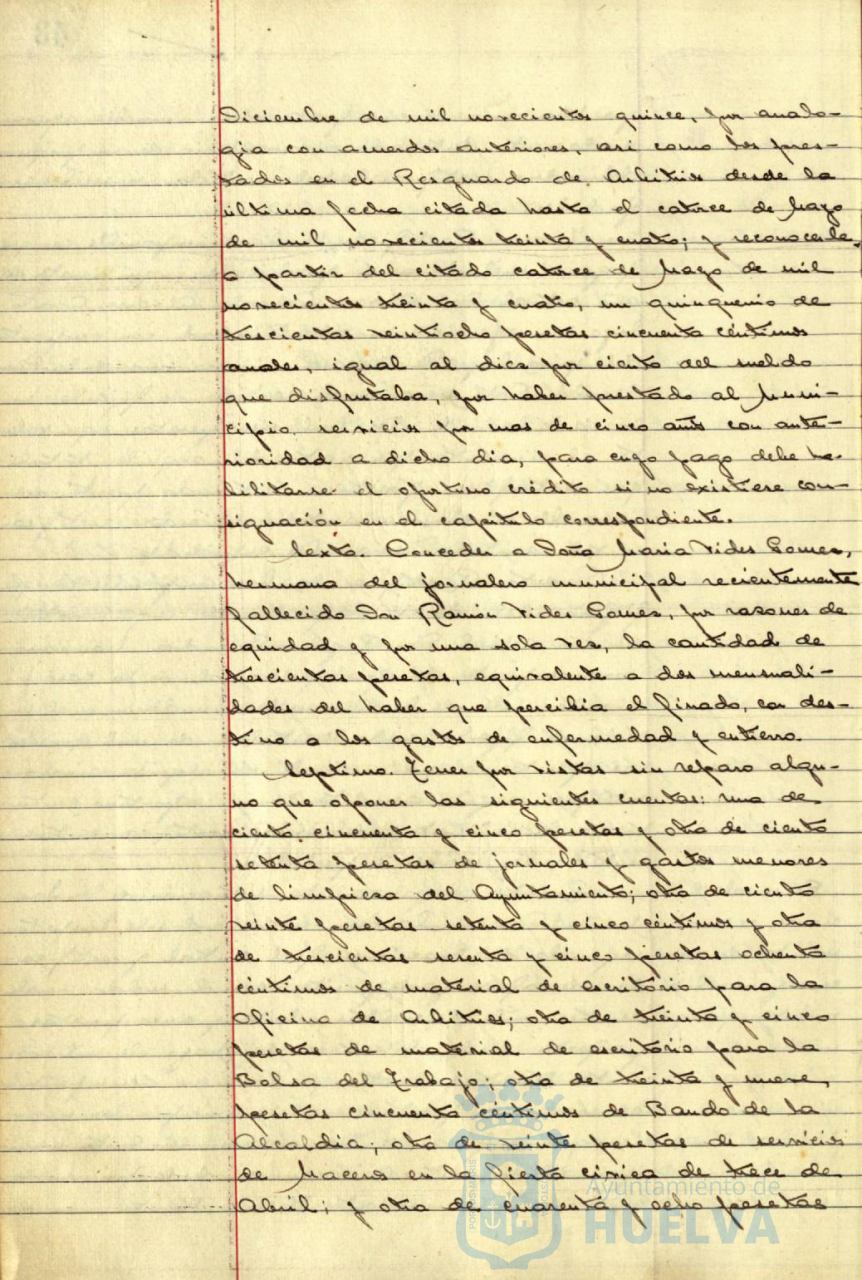 Diciembre de mil novecientos quince, por analo-
gia con acuerdos anteriores, asi como los pres-
tados en el Resguardo de Arbitrios desde la
ultima fecha citada hasta el catorce de Mayo
de mil novecientos treinta y cuatro; y reconocerle,
a partir del citado catorce de Mayo de mil
novecientos treinta y cuatro, un quinquenio de
trescientas veintiocho pesetas cincuenta céntimos
anuales, igual al diez por ciento del sueldo
que disfrutaba, por haber prestado al Muni-
cipio servicios por mas de cinco años con ante-
rioridad a dicho dia, para cuyo pago debe ha-
bilitarse el oportuno crédito si no existiere con-
signación en el capítulo correspondiente.
Sexto. Conceder a Doña Maria Vides Gomez,
hermana del jornalero municipal recientemente
fallecido Don Ramón Vides Gomez, por razones de
equidad y por una sola vez, la cantidad de
trescientas pesetas, equivalente a dos mensuali-
dades del haber que percibia el finado, con des-
tino a los gastos de enfermedad y entierro.
Septimo. Tener por vistas sin reparo algu-
no que oponer las siguientes cuentas: una de
ciento cincuenta y cinco pesetas y otra de ciento
setenta pesetas de jornales y gastos menores
de limpieza del Ayuntamiento; otra de ciento
veinte pesetas setenta y cinco céntimos y otra
de trescientas sesenta y cinco pesetas ochenta
céntimos de material de escritório para la
Oficina de Arbitrios; otra de treinta y cinco
pesetas de material de escritório para la
Bolsa del Trabajo; otra de treinta y nueve
pesetas cincuenta céntimos de Bando de la
Alcaldia; otra de veinte pesetas de servicios
de Maceros en la fiesta cívica de trece de
Abril; y otra de cuarenta y ocho pesetas
Ayuntamiento de
HUELVA